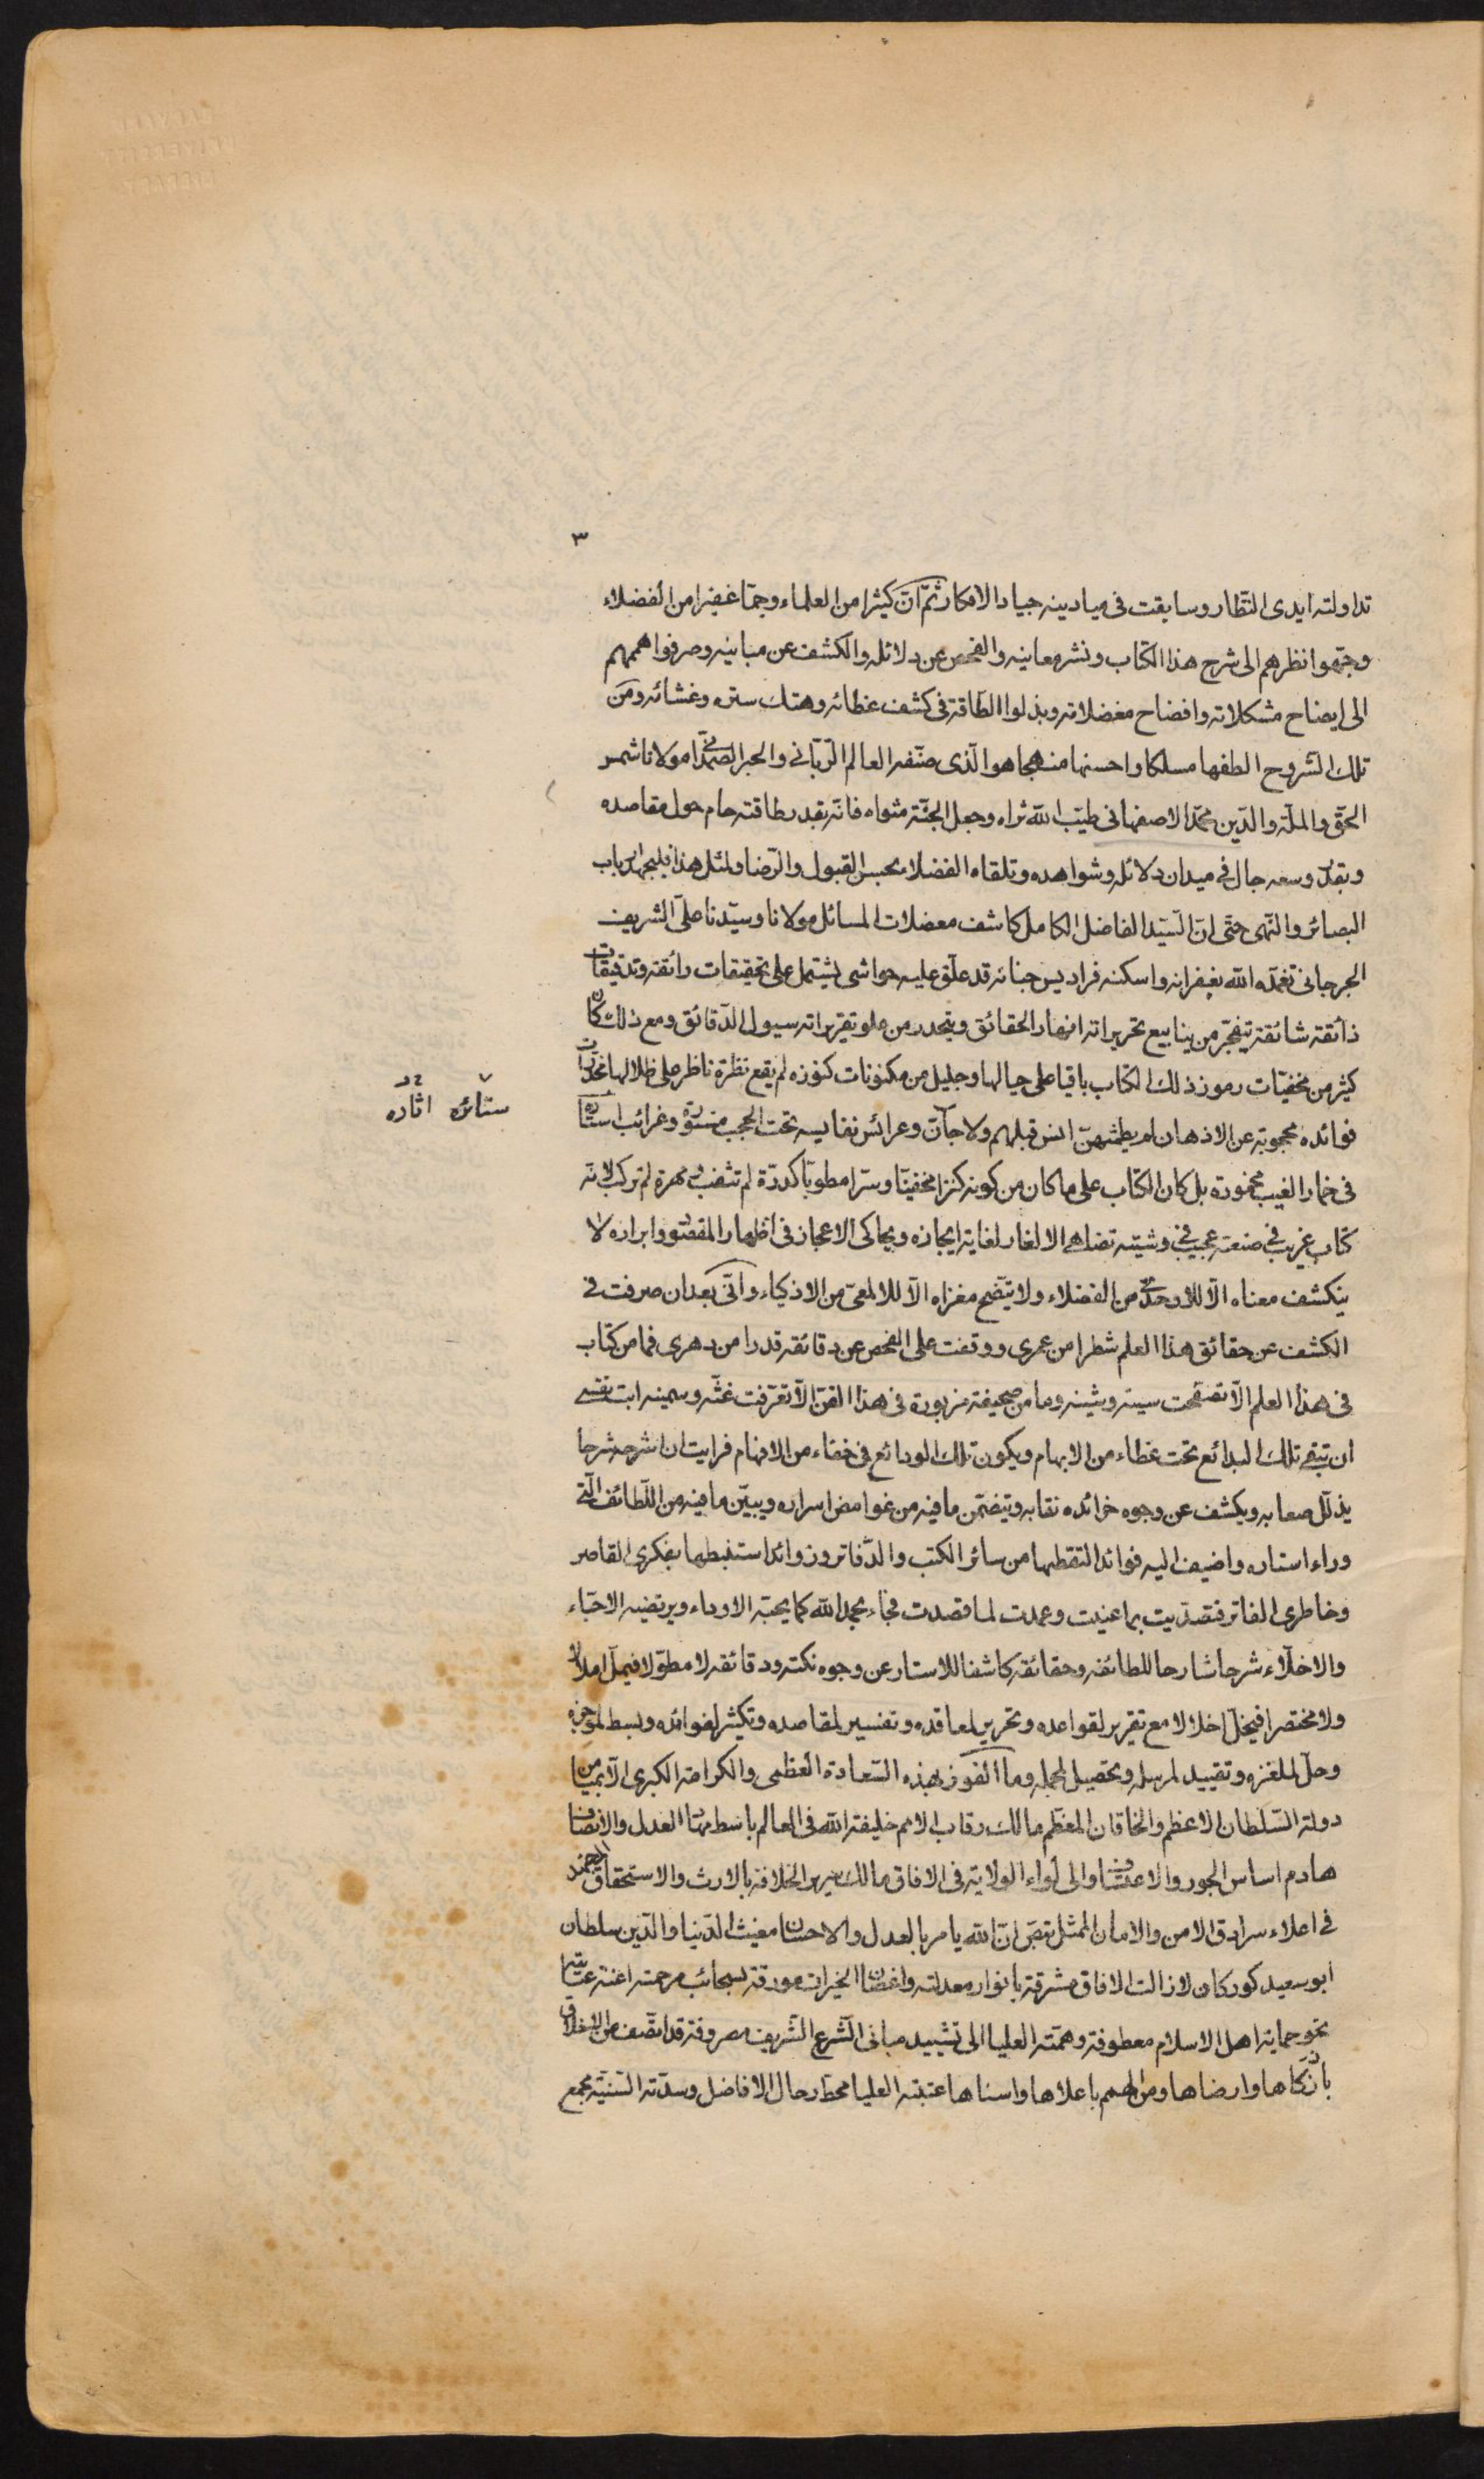 ٣
تداولته ايدى النظار وسابقت فى ميادينه جياد الافكار ثمّ انّ كثيرا من العلماء وجمّا غفيرا من الفضلاء
وجّهوا نظرهم الى شرح هذا الكتاب ونشر معانيه والفحص عن دلائله والكشف عن مبانيه وصرفوا هممهم
الى ايضاح مشكلاته وافضاح معضلاته وبذلوا الطاقة فى كشف غطائه وهتك ستره وغشائه ومن
تلك الشروح الطفها مسلكا واحسنها منهجا هو الّذى صنّفه العالم الرّبّانى والحبر الصّمدانى مولانا شمس
الحقّ والملّة والدّين محمّد الاصفهانى طيّب الله ثراه وجعل الجنّة مثواه فانّه بقدر طاقته حام حول مقاصده
وبقدر وسعه جال فى ميدان دلائله وشواهده وتلقاه الفضلاء بحسن القبول والرّضا ولمثل هذا فليجهد ارباب
البصائر والنّهى حتّى انّ السّيّد الفاضل الكامل كاشف معضلات المسائل مولانا وسيّدنا علىّ الشريف
الجرجانى تغمّده الله بغفرانه واسكنه فراديس جنانه قد علّق عليه حواشى يشتمل على تحقيقات رائقة وتدقيقات
ذائقة شائقة يتفجّر من ينابيع تحريراته انهار الحقائق ويتحدر من علو تقريراته سيول الدّقائق ومع ذلك كان
كثير من مخفيّات رموز ذلك الكتاب باقيا على حيالها وجليل من مكنونات كنوزه لم يقع نظرة ناظر على ظلالها مخدّرات
فوائده محجوبة عن الاذهان لم يطمثهنّ انس قبلهم ولا جانّ وعرائس نفايسه تحت الحجب مستورة وغرائب استاره
ستائره اثاره
فى خمار الغيب مخمورة بل كان الكتاب على ما كان من كونه كنزا مخفيّا وسرّا مطويّا كدرّة لم تثقب ومهرة لم تركب لانّه
كتاب غريب فى صنعته عجيب فى وشيته تضاهى الالغاز لغاية ايجازه ويحاكى الاعجاز فى اظهار المقصود وابرازه لا
ينكشف معناه الّا للاوحدى من الفضلاء ولا يتّضح مغزاه الّا للالمعىّ من الاذكياء وانّى بعد ان صرفت فى
الكشف عن حقائق هذا العلم شطرا من عمرى ووقفت على الفحص عن دقائقه قدرا من دهرى فما من كتاب
فى هذا العلم الّا تصفّحت سينه وشينه وما من صحيفة مزبورة فى هذا الفنّ الّا تعرّفت غثّه وسمينه ابت نفسى
ان تبقى تلك البدائع تحت غطاء من الابهام ويكون تلك الودائع فى خفاء من الافهام فرايت ان اشرحه شرحا
يذلّل صعابه ويكشف عن وجوه خرائده نقابه ويتضمّن ما فيه من غوامض اسراره ويبيّن ما فيه من اللّطائف الّتى
وراء استاره واضيف اليه فوائد التقطها من سائر الكتب والدّفاتر وزوائد استنبطها بفكرى القاصر
وخاطرى الفاتر فتصدّيت بما عنيت وعمدت لما قصدت فجاء بحمد الله كما يحبّه الاودّاء ويرتضيه الاحبّاء
والاخلّاء شرحا شارحا للطائفه وحقائقه كاشفا للاستار عن وجوه نكته ودقائقه لا مطوّلا فيملّ املالا
ولا مختصرا فيخلّ اخلالا مع تقرير لقواعده وتحرير لمعاقده وتفسير لمقاصده وتكثير لفوائده وبسط لموجزه
وحلّ لملغزه وتقييد لمرسله وتفصيل لمجمله وما الفوز بهذه السّعادة العظمى والكرامة الكبرى الّا بميامن
دولة السّلطان الاعظم والخاقان المعظّم مالك رقاب الامم خليفة الله فى العالم باسط مهاد العدل والانصاف
هادم اساس الجور والاعتساف والى لواء الولاية فى الافاق مالك سرير الخلافة بالارث والاستحقاق المجتهد
فى اعلاء سرادق الامن والامان الممثل بنصّ انّ الله يامر بالعدل والاحسان مغيث الدّنيا والدّين سلطان
ابو سعيد كوركان لا زالت الافاق مشرقة بانوار معدلته واغصان الخيرات مورقة بسحائب مرحمته اعنة عنايته
نحو حماية اهل الاسلام معطوفة وهمّته العليا الى تشييد مبانى الشّرع الشّريف مصروفة قد اتّصف من الاخلاق
بازكاها وارضاها ومن الهمم باعلاها واسناها عتبته العليا محطّ رحال الافاضل وسدّته السّنيّة مجمع